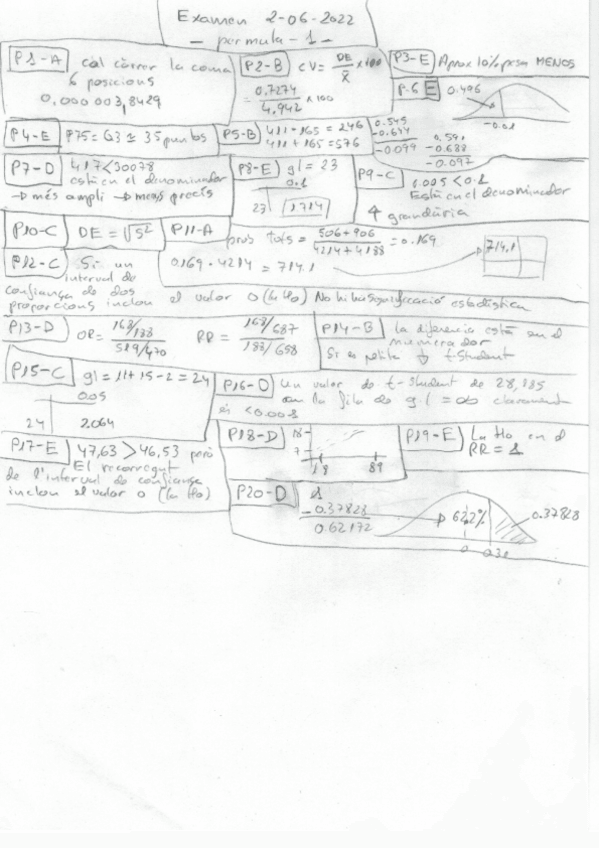 Examen 2-06-2022
- permuta - 1 -
P1-A cal córrer la coma
6 posicions
0.000003,8429
P2-B CV= DE/x̄ x100
= 0.7274/4.942 x100
P3-E Aprox 10% pesa MENOS
P.6 E 0.496
-0.01
P4-E P75=Q3 ≃ 35 punts
P5-B 411-165=246
411+165=576
0.545
-0.644
-0.099
0.591
-0.688
-0.097
P7-D 417<30078
està en el denominador
→ més ampli → menys precís
P8-E gl=23
0.1
23 1.714
P9-C 0.005<0.1
Està en el denominador
↑ grandària
P10-C DE=√S²
P11-A
prob tots = 506+906/4214+4188 = 0.169
0.169 · 4214 = 714.1
714.1
P12-C Si un
interval de
confiança de dos
proporcions inclou el valor 0 (la Ho) No hi ha significació estadística
P13-D OR= 168/188 / 519/470 RR = 168/687 / 188/658
P14-B La diferencia està en el
numerador
Si es petita ↓ t-Student
P15-C gl=11+15-2=24
0.05
24 2.064
P16-D Un valor de t-Student de 28,885
en la fila de gl=∞ clarament
és <0.001
P17-E 47,63 > 46,53 però
El recorregut
de l'interval de confiança
inclou el valor 0 (la Ho)
P18-D 18
7
18 89
P19-E La Ho en el
RR = 1
P20-D 1
-0.37828
0.62172
62,2%
0.37828
0 0.31